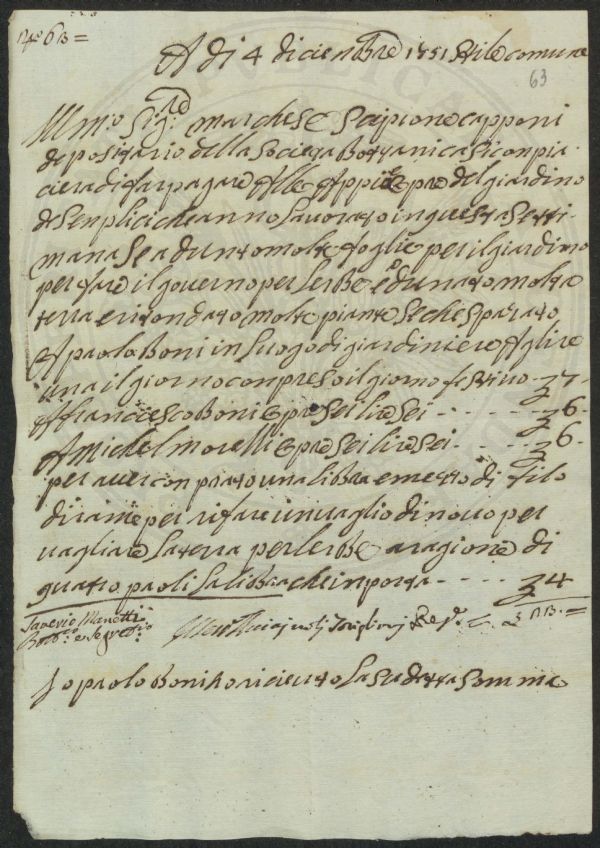 N.º 63 =
A di 4 dicienbre 1751 stile comune
63
Illm:º Sig:re marchese Scipione capponi
depositario della Societa Bottanica si conpia
ciera di far pagare alle Appie opre del giardino
de Senplici che anno lavorato in questa Setti
mana se adunto molte foglie per il giardino
per fare il governo per l'erbe e adunato molta
terra e ritondato molte piante seche sparato
A paolo Boni in luogo di giardiniere A lire
una il giorno conpreso il giorno festivo - 7
A francesco Boni opre sei lire sei - - - - - 6 -
A Michel morelli opre sei lire sei - - - - 6 -
per aver conprato una libra e metto di filo
di rame per rifare un vaglio di novo per
vagliare la terra per l'erbe a ragione di
quatro paoli la libra che inporta - - - - 4
Saverio Manetti
Bot:co e Segret:rio
23 =
Io paolo Boni ho riceuto la sudetta somma